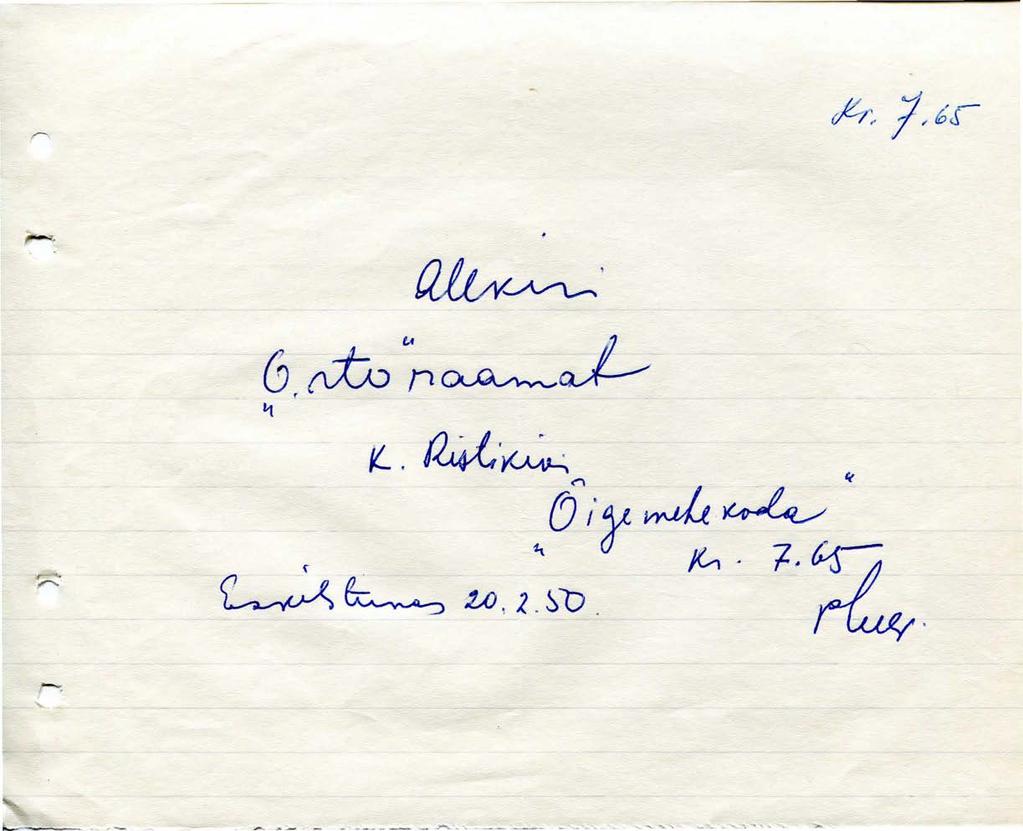 Kr. 7.65
Allkiri
„O. Orto" raamat
K. Ristikivi
„Õige mehe koda"
Kr. 7.65
Eskilstunas 20.2.50.